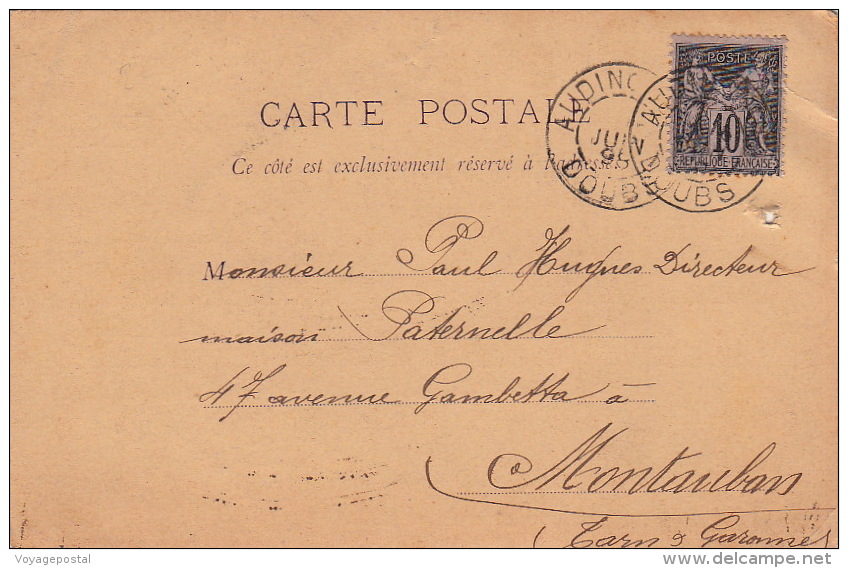 CARTE POSTALE
Ce côté est exclusivement réservé à l'adresse
POSTE
10
REPUBLIQUE FRANÇAISE
DOUBS
DOUBS
Monsieur Paul Hugues Directeur
maison Paternelle
47 avenue Gambetta à
Montauban
(Tarn & Garonne)
Voyagepostal
delcampe.net